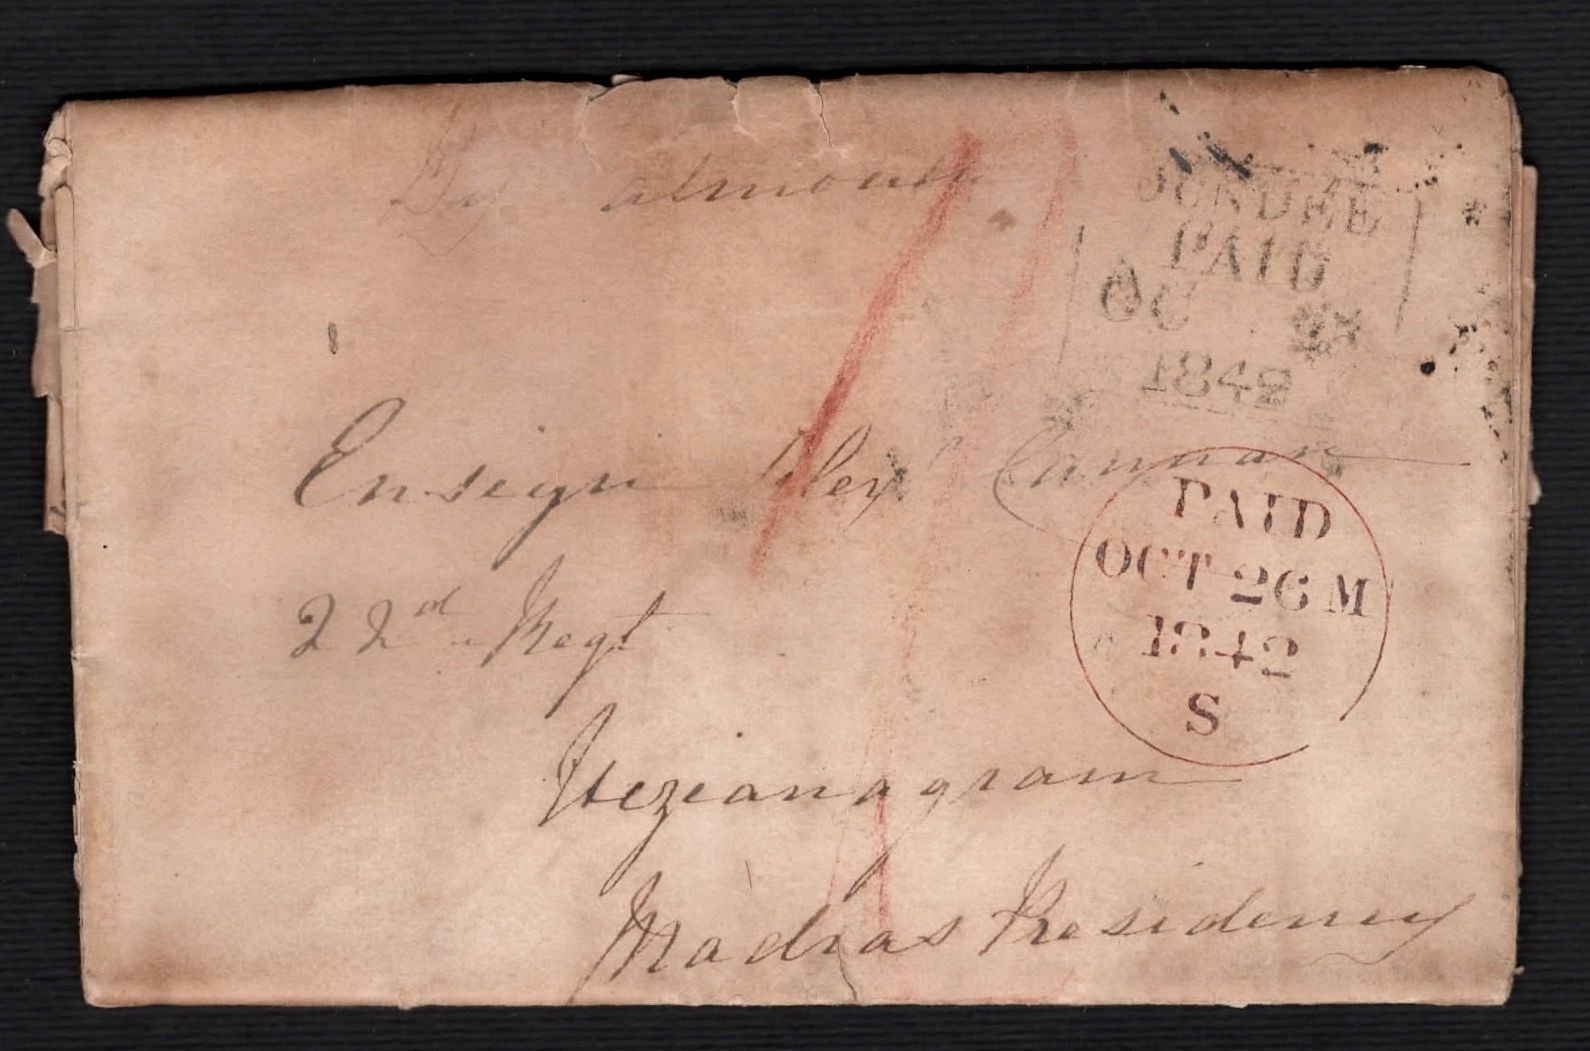 By almouth
DUNDEE
PAID
OC
1842
Ensign Alexr Cannan
22d Regt
PAID
OCT 26 M
1842
S
Vezianagram
Madras Presidency